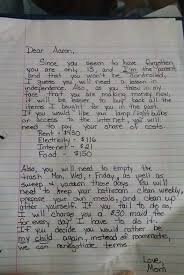 Dear Aaron,
Since you seem to have forgotten
you are only 13, and I'm the parent
and that you won't be controlled,
I guess you will need a lesson in
independence. Also, as you threw in my
face that you are making money now,
it will be easier to buy back all the
items I bought for you in the past.
If you would like your lamp/lightbulbs
or access to the internet, you will
need to pay your share of costs.
Rent - $430
Electricity - $116
Internet - $21
Food - $150
Also, you will need to empty the
trash Mon, Wed, + Friday, as well as
sweep + vacuum those days. You will
need to keep your bathroom clean weekly,
prepare your own meals, and clean up
after yourself. If you fail to do so
I will charge you a $30 maid fee
for every day I have to do it.
If you decide you would rather be
my child again, instead of roommate,
we can negotiate terms.
Love,
Mom